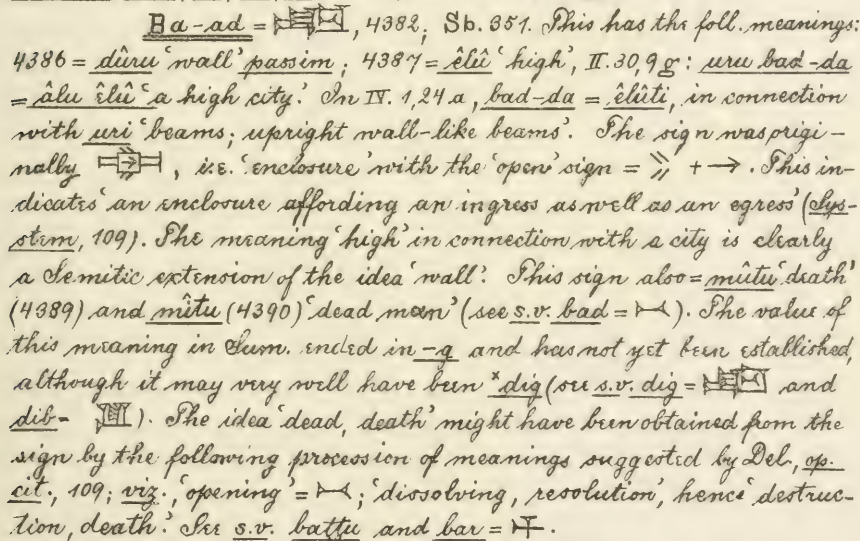 Ba-ad = 𒂦, 4382; Sb. 351. This has the foll. meanings:
4386 = dûru 'wall' passim; 4387 = êlû 'high', II. 30, 9 g: uru bad-da
= âlu êlû 'a high city.' In IV. 1, 24 a, bad-da = êlûti, in connection
with uri 'beams; upright wall-like beams'. The sign was origi-
nally , i.e. 'enclosure' with the 'open' sign = + → . This in-
dicates 'an enclosure affording an ingress as well as an egress' (Sys-
stem, 109). The meaning 'high' in connection with a city is clearly
a Semitic extension of the idea 'wall'. This sign also = mûtu 'death'
(4389) and mîtu (4390) 'dead man' (see s.v. bad = 𒁁). The value of
this meaning in Sum. ended in -g and has not yet been established,
although it may very well have been *dig (see s.v. dig = and
dib- ). The idea 'dead, death' might have been obtained from the
sign by the following procession of meanings suggested by Del, op.
cit., 109; viz., 'opening' = 𒁁; 'dissolving, resolution', hence 'destruc-
tion, death.' See s.v. battu and bar = 𒁇.